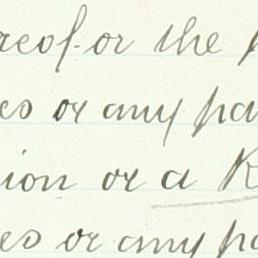 reof or the
es or any pa
ion or a R
es or any pa